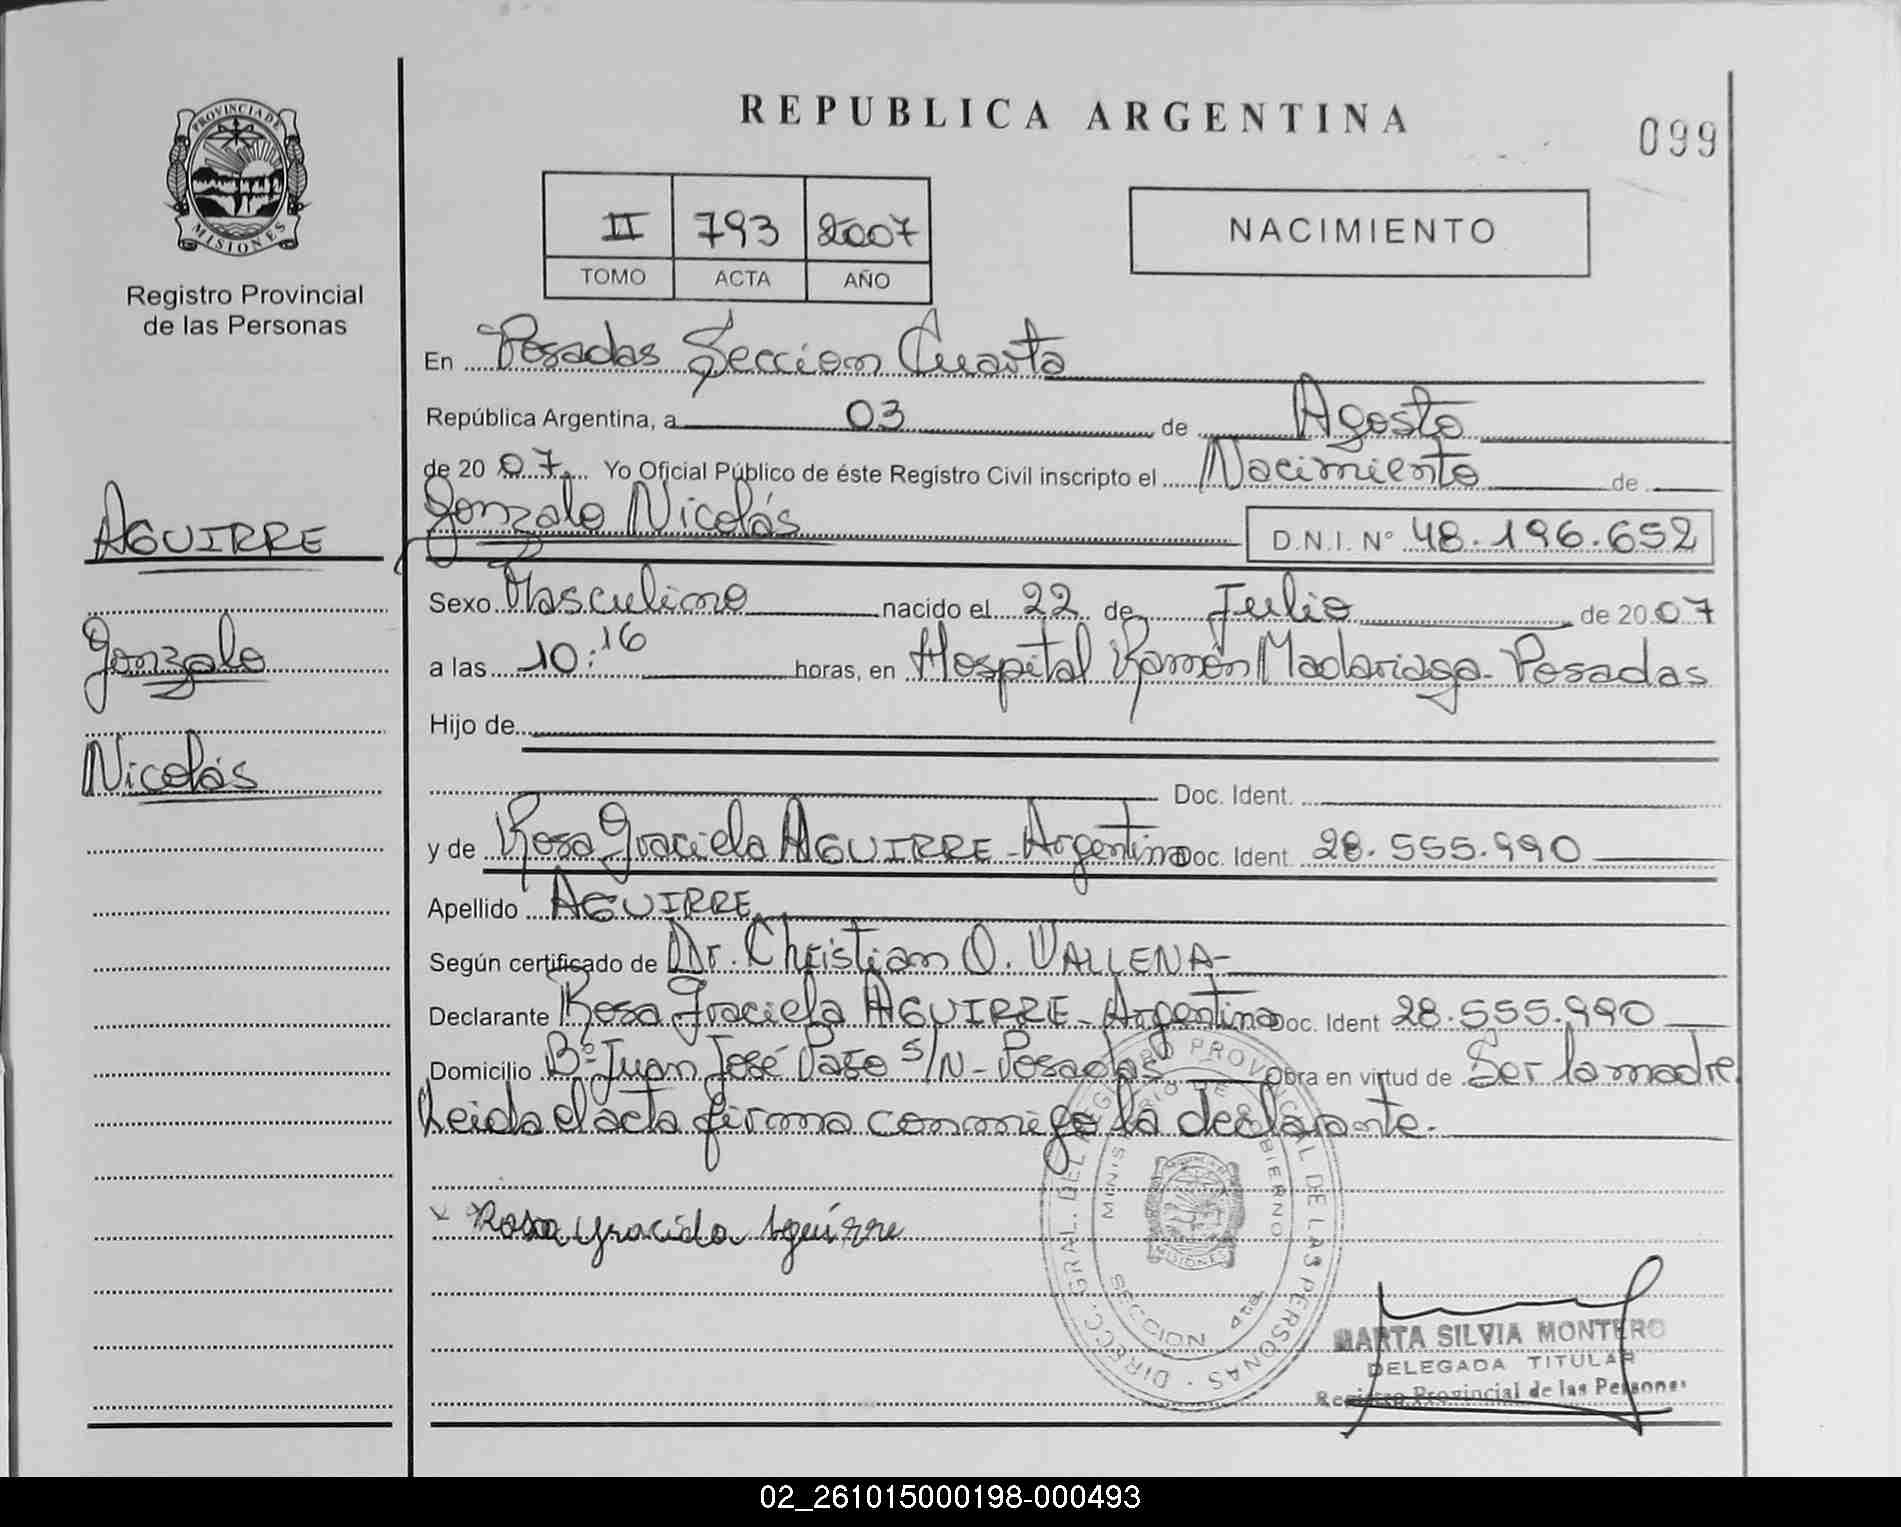 REPUBLICA ARGENTINA
099
PROVINCIA DE
MISIONES
Registro Provincial
de las Personas
II 793 2007
TOMO ACTA AÑO
NACIMIENTO
En Posadas Sección Cuarta
República Argentina, a 03 de Agosto
de 2007 Yo Oficial Público de éste Registro Civil inscripto el Nacimiento de
Gonzalo Nicolás D.N.I. Nº 48.196.652
AGUIRRE
Gonzalo
Nicolás
Sexo Masculino nacido el 22 de Julio de 2007
a las 10:16 horas, en Hospital Ramón Madariaga - Posadas
Hijo de
Doc. Ident.
y de Rosa Graciela AGUIRRE - Argentina Doc. Ident. 28.555.990
Apellido AGUIRRE
Según certificado de Dr. Christian O. VALLENA-
Declarante Rosa Graciela AGUIRRE - Argentina Doc. Ident 28.555.990
Domicilio Bº Juan José Paso S/N - Posadas Obra en virtud de Ser la madre
Leida el acta firma conmigo la declarante.
x Rosa Graciela Aguirre
DIRECC. GRAL. DEL REGISTRO PROVINCIAL DE LAS PERSONAS
MINISTERIO DE GOBIERNO
SECCION 4ta
MISIONES
MARTA SILVIA MONTERO
DELEGADA TITULAR
Registro Provincial de las Personas
02_261015000198-000493